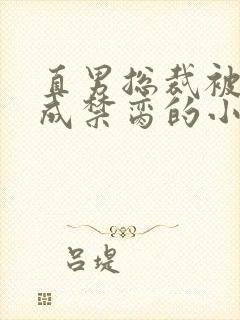 真男总裁被
成禁脔的小
吕堤